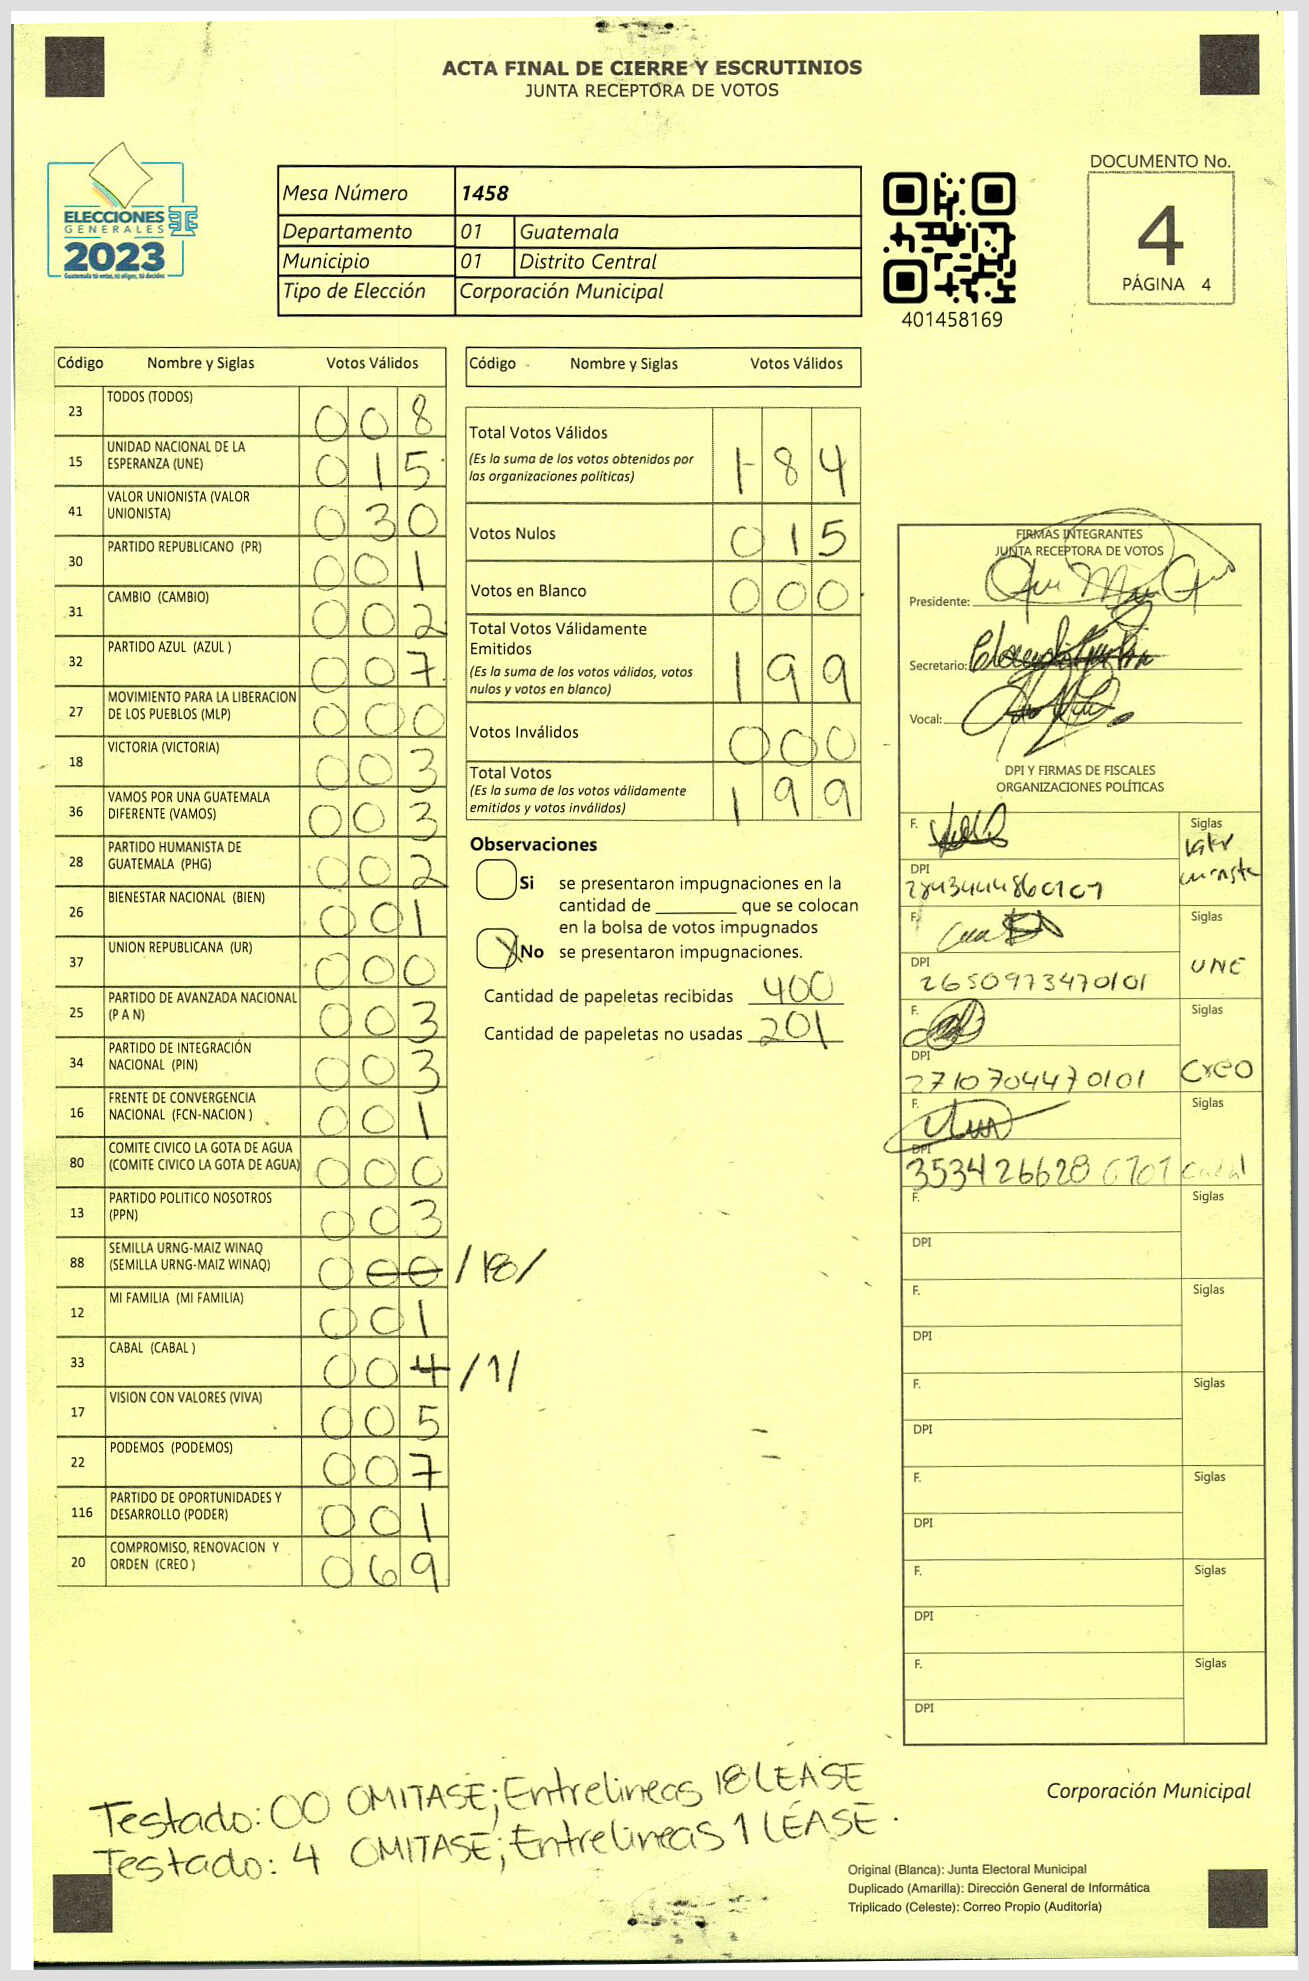 ACTA FINAL DE CIERRE Y ESCRUTINIOS
JUNTA RECEPTORA DE VOTOS
ELECCIONES
GENERALES
2023
Guatemala tú eres, tú eliges, tú decides
Mesa Número 1458
Departamento 01 Guatemala
Municipio 01 Distrito Central
Tipo de Elección Corporación Municipal
401458169
DOCUMENTO No.
4
PÁGINA 4
Código Nombre y Siglas Votos Válidos
23 TODOS (TODOS) 0 0 8
15 UNIDAD NACIONAL DE LA ESPERANZA (UNE) 0 1 5
41 VALOR UNIONISTA (VALOR UNIONISTA) 0 3 0
30 PARTIDO REPUBLICANO (PR) 0 0 1
31 CAMBIO (CAMBIO) 0 0 2
32 PARTIDO AZUL (AZUL ) 0 0 7
27 MOVIMIENTO PARA LA LIBERACION DE LOS PUEBLOS (MLP) 0 0 0
18 VICTORIA (VICTORIA) 0 0 3
36 VAMOS POR UNA GUATEMALA DIFERENTE (VAMOS) 0 0 3
28 PARTIDO HUMANISTA DE GUATEMALA (PHG) 0 0 2
26 BIENESTAR NACIONAL (BIEN) 0 0 1
37 UNION REPUBLICANA (UR) 0 0 0
25 PARTIDO DE AVANZADA NACIONAL (P A N) 0 0 3
34 PARTIDO DE INTEGRACIÓN NACIONAL (PIN) 0 0 3
16 FRENTE DE CONVERGENCIA NACIONAL (FCN-NACION ) 0 0 1
80 COMITE CIVICO LA GOTA DE AGUA (COMITE CIVICO LA GOTA DE AGUA) 0 0 0
13 PARTIDO POLITICO NOSOTROS (PPN) 0 0 3
88 SEMILLA URNG-MAIZ WINAQ (SEMILLA URNG-MAIZ WINAQ) 0 0 0 /18/
12 MI FAMILIA (MI FAMILIA) 0 0 1
33 CABAL (CABAL ) 0 0 4 /1/
17 VISION CON VALORES (VIVA) 0 0 5
22 PODEMOS (PODEMOS) 0 0 7
116 PARTIDO DE OPORTUNIDADES Y DESARROLLO (PODER) 0 0 1
20 COMPROMISO, RENOVACION Y ORDEN (CREO ) 0 6 9
Código Nombre y Siglas Votos Válidos
Total Votos Válidos 1 8 4
(Es la suma de los votos obtenidos por
las organizaciones políticas)
Votos Nulos 0 1 5
Votos en Blanco 0 0 0
Total Votos Válidamente
Emitidos 1 9 9
(Es la suma de los votos válidos, votos
nulos y votos en blanco)
Votos Inválidos 0 0 0
Total Votos 1 9 9
(Es la suma de los votos válidamente
emitidos y votos inválidos)
Observaciones
Si se presentaron impugnaciones en la
cantidad de ________ que se colocan
en la bolsa de votos impugnados
X No se presentaron impugnaciones.
Cantidad de papeletas recibidas 400
Cantidad de papeletas no usadas 201
FIRMAS INTEGRANTES
JUNTA RECEPTORA DE VOTOS
Presidente:
Secretario:
Vocal:
DPI Y FIRMAS DE FISCALES
ORGANIZACIONES POLÍTICAS
F. Siglas
Valor
DPI
F. Siglas
DPI UNE
2650973470101
F. Siglas
DPI
2710704470101 Creo
F. Siglas
DPI
3534266280101 Cabal
F. Siglas
DPI
F. Siglas
DPI
F. Siglas
DPI
F. Siglas
DPI
F. Siglas
DPI
F. Siglas
DPI
Corporación Municipal
Testado: 00 OMITASE; Entrelineas 18 LEASE
Testado: 4 OMITASE; Entrelineas 1 LÉASE.
Original (Blanca): Junta Electoral Municipal
Duplicado (Amarilla): Dirección General de Informática
Triplicado (Celeste): Correo Propio (Auditoría)